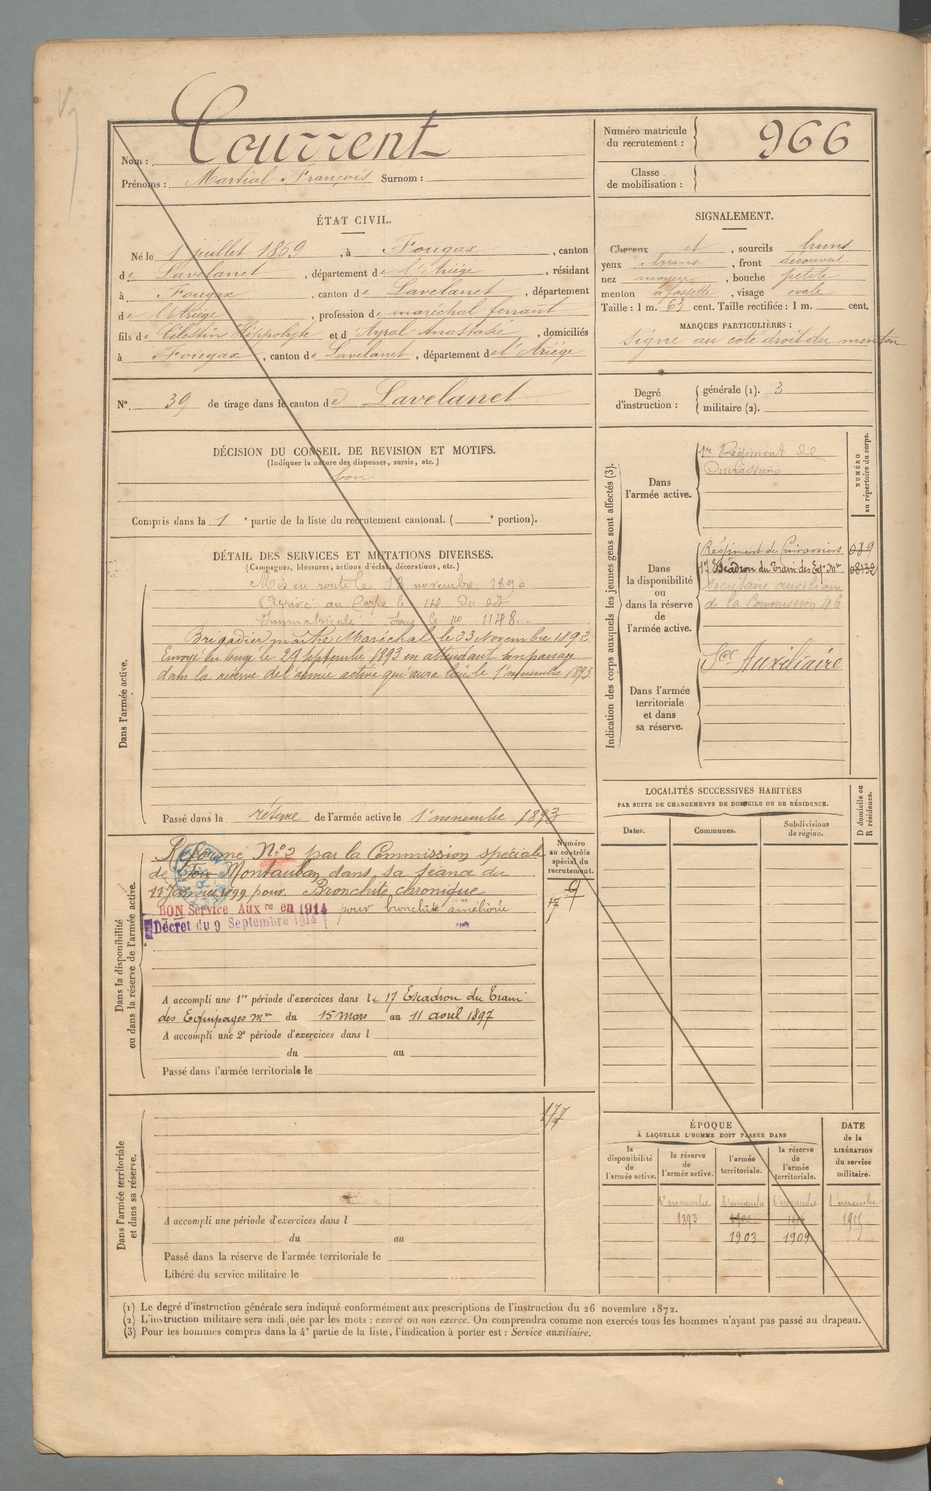 Nom : Courrent
Prénoms : Martial François Surnom :
Numéro matricule du recrutement : 966
Classe de mobilisation :
ÉTAT CIVIL.
Né le 1 juillet 1869, à Fougax, canton
de Lavelanet, département de l'Ariége, résidant
à Fougax, canton de Lavelanet, département
de l'Ariége, profession de maréchal ferrant
fils de Célestin Hippolyte et d Ayral Anastasie, domiciliés
à Fougax, canton de Lavelanet, département de l'Ariége
SIGNALEMENT.
Cheveux et, sourcils bruns
yeux bruns, front découvert
nez moyen, bouche petite
menton à fossette, visage ovale
Taille : 1 m. 63 cent. Taille rectifiée : 1 m. cent.
MARQUES PARTICULIÈRES :
Signe au côté droit du menton
N° 39 de tirage dans le canton de Lavelanet
Degré d'instruction : générale (1). 3
militaire (2).
DÉCISION DU CONSEIL DE REVISION ET MOTIFS.
(Indiquer la nature des dispenses, sursis, etc.)
bon
Compris dans la 1e partie de la liste du recrutement cantonal. ( e portion).
DÉTAIL DES SERVICES ET MUTATIONS DIVERSES.
(Campagnes, blessures, actions d'éclat, décorations, etc.)
Dans l'armée active.
Mis en route le 12 novembre 1890
Arrivé au Corps le 14 du dit
Immatriculé sous le no 1148.
Brigadier maître Maréchal le 23 Novembre 1892
Envoyé en congé le 29 septembre 1893 en attendant son passage
dans la réserve de l'armée active qui aura lieu le 1er novembre 1893
Passé dans la réserve de l'armée active le 1er novembre 1893
Dans la disponibilité ou dans la réserve de l'armée active.
Numéro au contrôle spécial du recrutement.
Réforme N°2 par la Commission spéciale
de Foix Montauban dans sa séance du
11 Janvier 1899 pour Bronchite chronique
BON Service Auxre en 1914 pour bronchite améliorée
Décret du 9 Septembre 1914
A accompli une 1re période d'exercices dans le 17 Escadron du Train
des Equipages mre du 15 mars au 11 avril 1897
A accompli une 2e période d'exercices dans l
du au
Passé dans l'armée territoriale le
Dans l'armée territoriale et dans sa réserve.
177
A accompli une période d'exercices dans l
du au
Passé dans la réserve de l'armée territoriale le
Libéré du service militaire le
Indication des corps auxquels les jeunes gens sont affectés (3).
NUMÉRO au répertoire du corps.
Dans l'armée active.
1er Régiment de
Cuirassiers
Dans la disponibilité ou dans la réserve de l'armée active.
Régiment de Cuirassiers 089
17 Escadron du Train des Eq. Mre 08132
Secrétaire auxiliaire
de la Commission 46
Dans l'armée territoriale et dans sa réserve.
Sce Auxiliaire
LOCALITÉS SUCCESSIVES HABITÉES
PAR SUITE DE CHANGEMENTS DE DOMICILE OU DE RÉSIDENCE.
D domicile ou R résidence.
Dates. Communes. Subdivisions de région.
ÉPOQUE
À LAQUELLE L'HOMME DOIT PASSER DANS
la disponibilité de l'armée active.
la réserve de l'armée active.
l'armée territoriale.
la réserve de l'armée territoriale.
DATE de la LIBÉRATION du service militaire.
1er novembre 1er novembre 1er novembre 1 novembre
1893 1915
1903 1909
(1) Le degré d'instruction générale sera indiqué conformément aux prescriptions de l'instruction du 26 novembre 1872.
(2) L'instruction militaire sera indiquée par les mots : exercé ou non exercé. On comprendra comme non exercés tous les hommes n'ayant pas passé au drapeau.
(3) Pour les hommes compris dans la 4e partie de la liste, l'indication à porter est : Service auxiliaire.